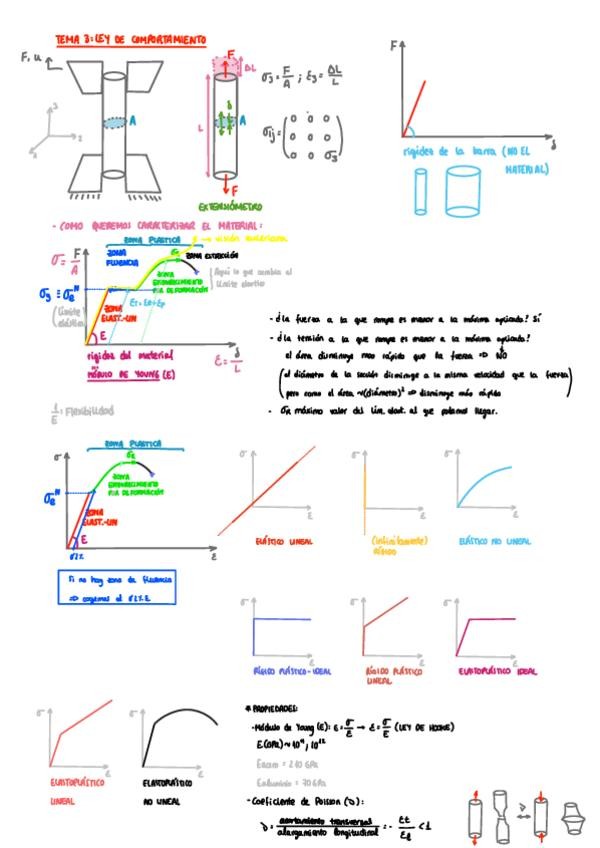 TEMA 3: LEY DE COMPORTAMIENTO
F, u
A
3
2
F
ΔL
L
A
F
EXTENSIÓMETRO
σ3 = F/A ; ε3 = ΔL/L
σij = ( 0 0 0
0 0 0
0 0 σ3 )
F
δ
rigidez de la barra (NO EL
MATERIAL)
- COMO QUEREMOS CARACTERIZAR EL MATERIAL:
ZONA PLASTICA
σ = F/A
ZONA
FLUENCIA
ZONA ESTRICCIÓN
ZONA
ENDURECIMIENTO
POR DEFORMACIÓN
Aquí lo que cambia el
límite elástico
(límite
elástico)
ZONA
ELAST.-LIN
E
rigidez del material
MÓDULO DE YOUNG (E)
ε = δ/L
1/E: Flexibilidad
- ¿la fuerza a la que rompe es menor a la máxima aplicada? Sí
- ¿la tensión a la que rompe es menor a la máxima aplicada?
el área disminuye mas rápido que la fuerza => NO
(el diámetro de la sección disminuye a la misma velocidad que la fuerza
pero como el área ~(diámetro)² => disminuye más rápido)
- σR máximo valor del lím. elast. al que podamos llegar.
ZONA PLASTICA
σ
σR
ZONA
ENDURECIMIENTO
POR DEFORMACIÓN
ZONA
ELAST.-LIN
E
ε
Si no hay zona de fluencia
=> cogemos el
σ
ε
ELÁSTICO LINEAL
σ
ε
(infinitamente)
RÍGIDO
σ
ε
ELÁSTICO NO LINEAL
σ
ε
RÍGIDO PLÁSTICO-IDEAL
σ
ε
RÍGIDO PLÁSTICO
LINEAL
σ
ε
ELASTOPLÁSTICO IDEAL
σ
ε
ELASTOPLÁSTICO
LINEAL
σ
ε
ELASTOPLÁSTICO
NO LINEAL
* PROPIEDADES:
- Módulo de Young (E): E = σ/ε → ε = σ/E (LEY DE HOOKE)
Eacero = 210 GPa
Ealuminio = 70 GPa
- Coeficiente de Poisson (ν):
ν = acortamiento transversal / alargamiento longitudinal = - εt/εl < 1